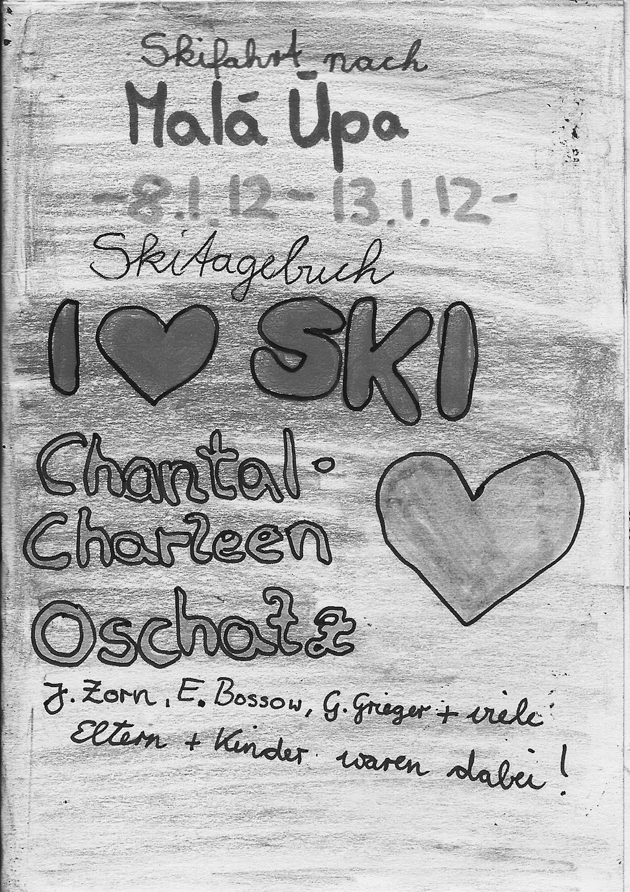 Skifahrt nach
Malá Úpa
-8.1.12-13.1.12-
Skitagebuch
I ♥ SKI
Chantal-
Charleen
Oschatz
J. Zorn, E. Bossow, G. Grieger + viele
Eltern + Kinder waren dabei!